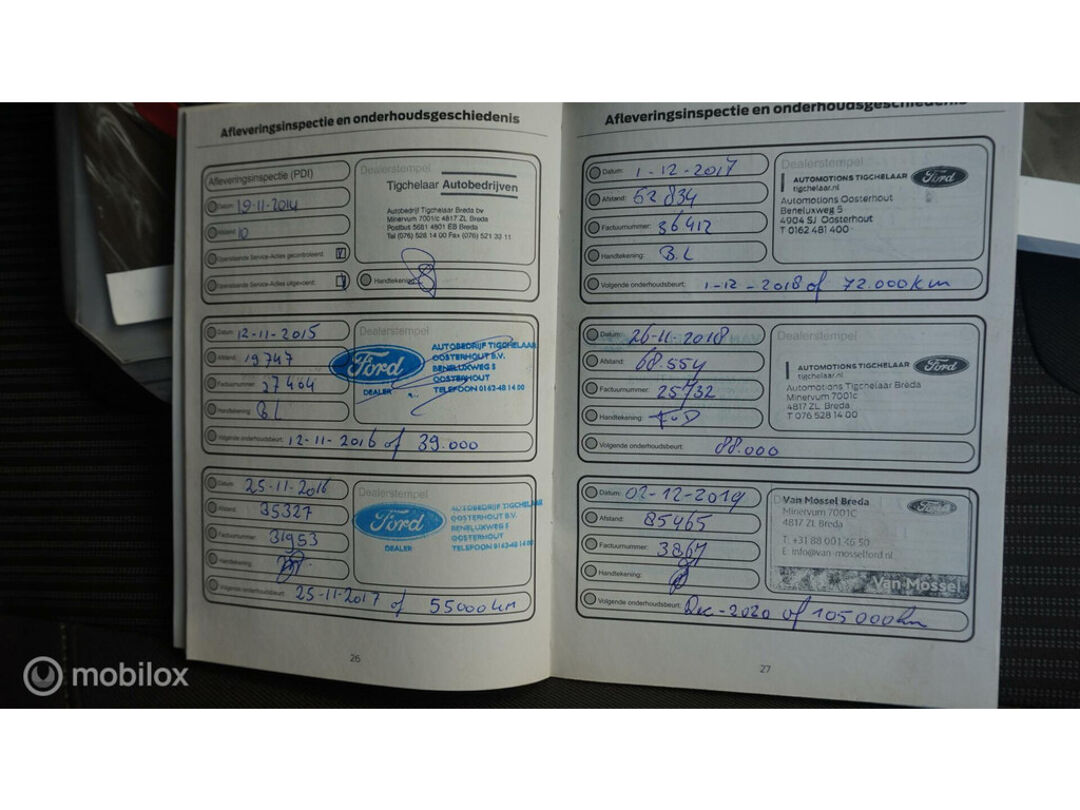 Afleveringsinspectie en onderhoudsgeschiedenis
Afleveringsinspectie (PDI)
Datum: 19-11-2014
Afstand: 10
Openstaande Service-Acties gecontroleerd:
Openstaande Service-Acties uitgevoerd:
Dealerstempel
Tigchelaar Autobedrijven
Autobedrijf Tigchelaar Breda bv
Minervum 7001c 4817 ZL Breda
Postbus 5681 4801 EB Breda
Tel (076) 528 14 00 Fax (076) 521 33 11
Handtekening:
Datum: 12-11-2015
Afstand: 19747
Factuurnummer: 27464
Handtekening: B L
Volgende onderhoudsbeurt: 12-11-2016 of 39.000
Dealerstempel
Ford
DEALER
AUTOBEDRIJF TIGCHELAAR
OOSTERHOUT B.V.
BENELUXWEG 5
OOSTERHOUT
TELEFOON 0162-48 14 00
Datum: 25-11-2016
Afstand: 35327
Factuurnummer: 31953
Handtekening:
Volgende onderhoudsbeurt: 25-11-2017 of 55000 km
Dealerstempel
Ford
DEALER
AUTOBEDRIJF TIGCHELAAR
OOSTERHOUT B.V.
BENELUXWEG 5
OOSTERHOUT
TELEFOON 0162-48 14 00
26
Afleveringsinspectie en onderhoudsgeschiedenis
Datum: 1-12-2017
Afstand: 52834
Factuurnummer: 36412
Handtekening: B.L
Volgende onderhoudsbeurt: 1-12-2018 of 72.000km
Dealerstempel
AUTOMOTIONS TIGCHELAAR
tigchelaar.nl
Ford
Automotions Oosterhout
Beneluxweg 5
4904 SJ Oosterhout
T 0162 481 400
Datum: 26-11-2018
Afstand: 68.554
Factuurnummer: 25732
Handtekening:
Volgende onderhoudsbeurt: 88.000
Dealerstempel
AUTOMOTIONS TIGCHELAAR
tigchelaar.nl
Ford
Automotions Tigchelaar Breda
Minervum 7001c
4817 ZL Breda
T 076 528 14 00
Datum: 02-12-2019
Afstand: 85465
Factuurnummer: 3867
Handtekening:
Volgende onderhoudsbeurt: Dec-2020 of 105000km
Van Mossel Breda
Minervum 7001C
4817 ZL Breda
T. +31 88 001 46 50
E. info@van-mosselford.nl
Ford
Van Mossel
27
mobilox